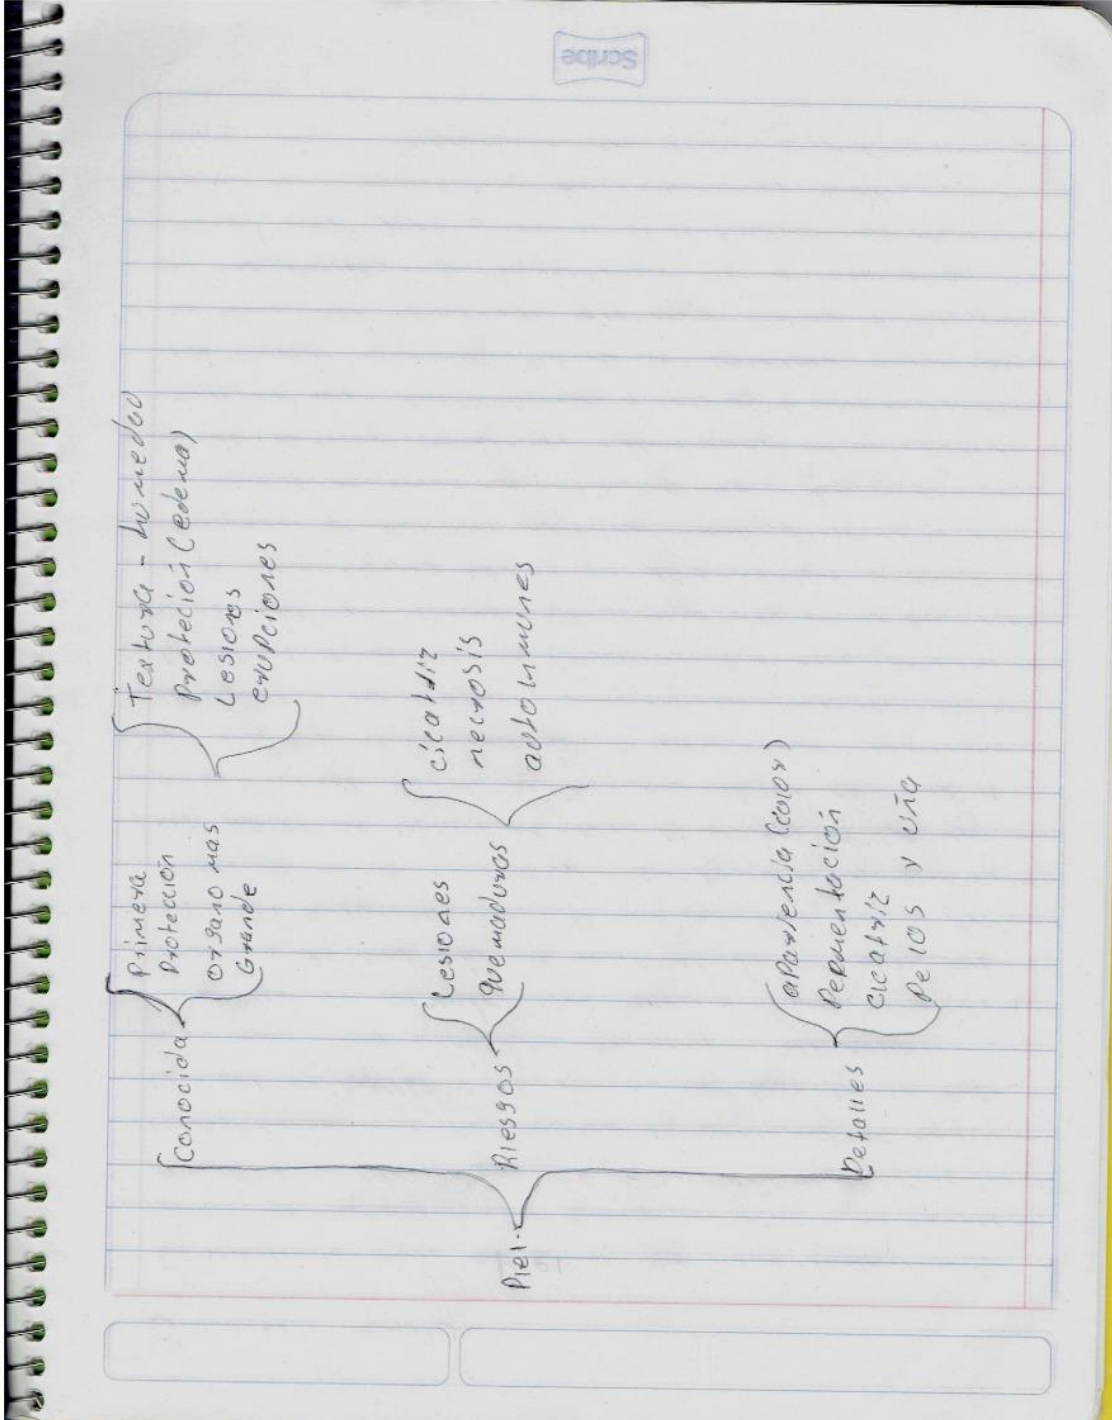 Scribe
Piel
Conocida
Primera
Protección
organo mas
Grande
Textura - humedad
Proteción (edema)
Lesiones
erupciones
Riesgos
Lesiones
quemaduras
cicatriz
necrosis
autoinmunes
Detalles
aparsencia (color)
Pegmentación
cicatriz
Pelos y uña